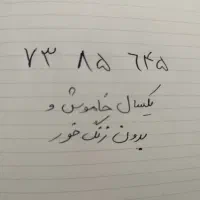 ۷۳ ۸۵ ۶۴۵
یکسال خاموش و
بدون زنگ خور